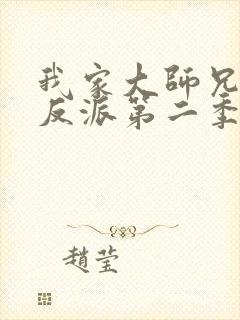 我家大師兄
反派第二季
趙莹